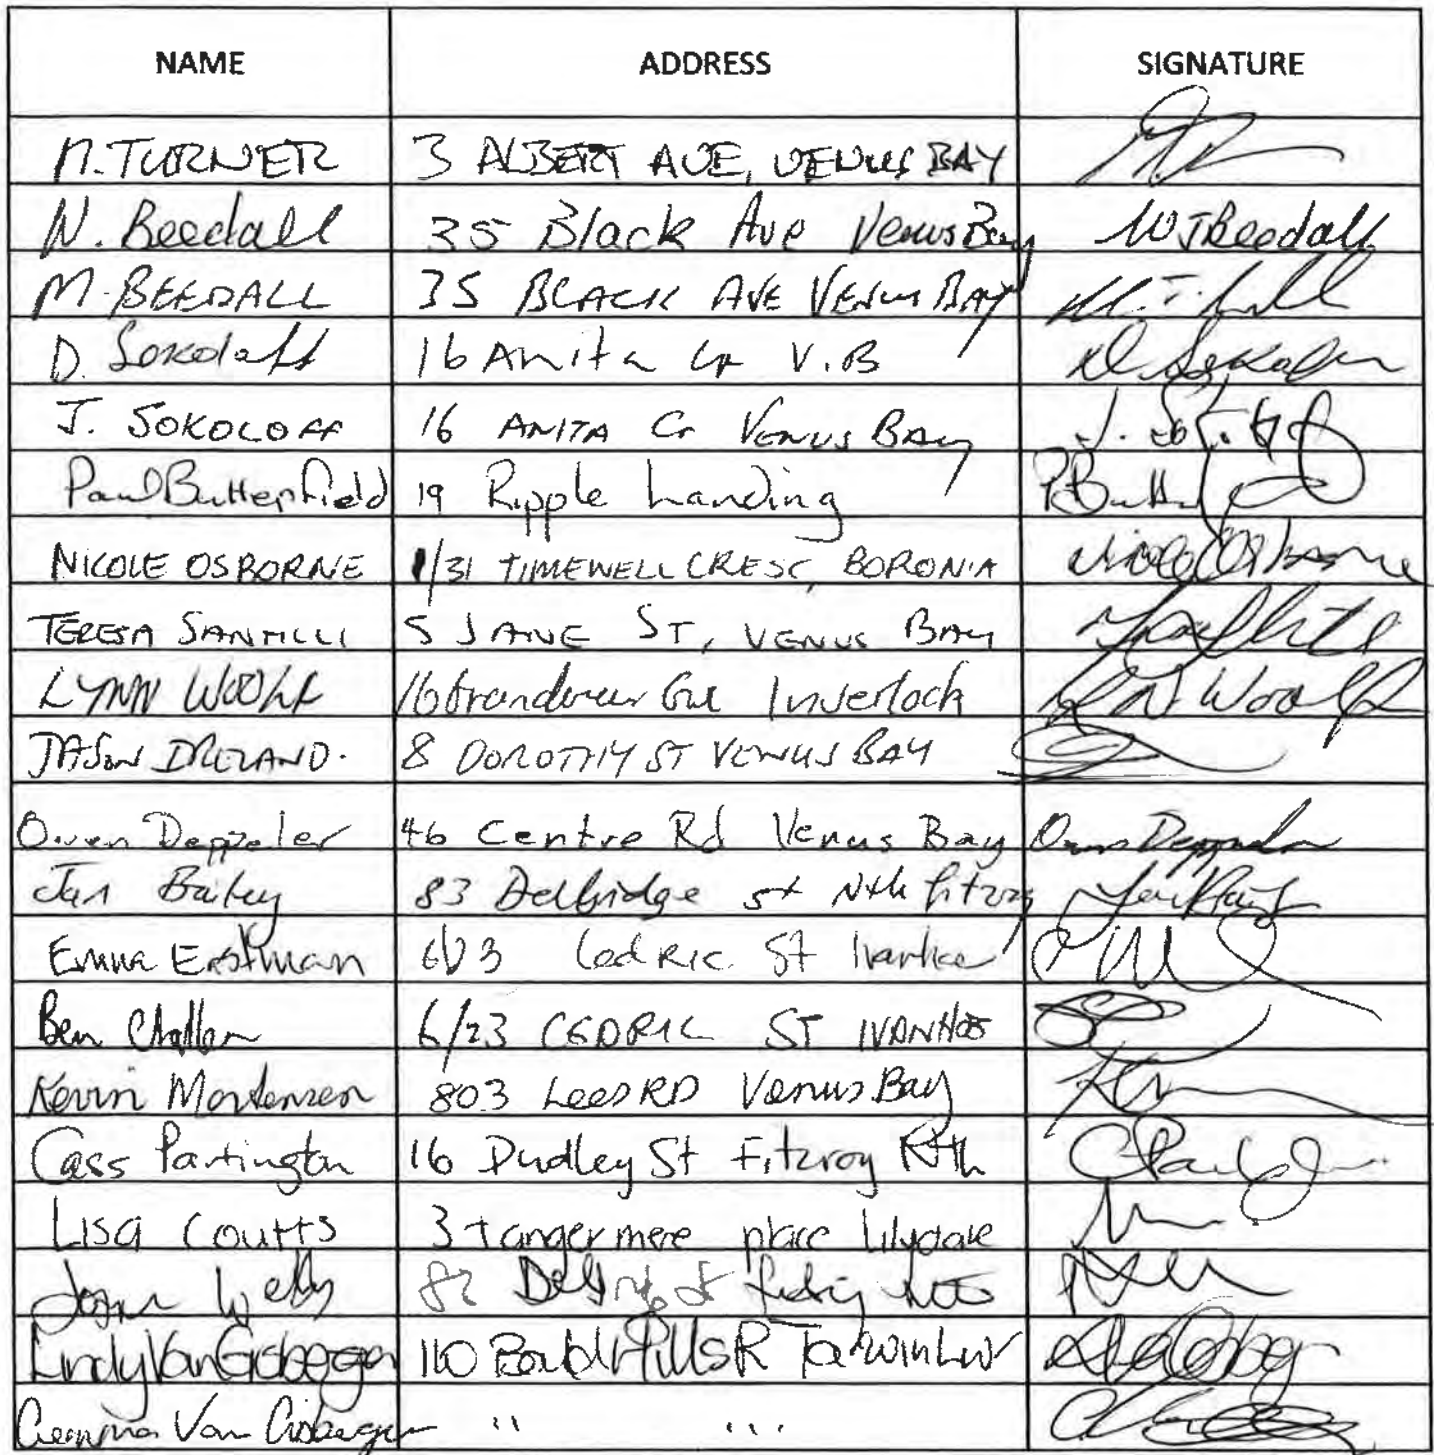 NAME ADDRESS SIGNATURE
M. TURNER 3 ALBERT AVE, VENUS BAY
N. Beedall 35 Black Ave Venus Bay WJBeedall
M. BEEDALL 35 BLACK AVE VENUS BAY
D. Sokoloff 16 Anita Cr V.B D. Sokoloff
J. SOKOLOFF 16 ANITA Cr VENUS BAY
Paul Butterfield 19 Ripple Landing
NICOLE OSBORNE 1/31 TIMEWELL CRESC, BORONIA Nicole Osborne
TERESA SANTILLI 5 JANE ST, VENUS BAY
LYNN WOOLF 16 Grandview Gve Inverloch Woolf
JASON IRELAND. 8 DOROTHY ST VENUS BAY
Owen Deppeler 46 Centre Rd Venus Bay Owen Deppeler
Jan Bailey 83 Delbridge st Nth Fitzroy
Emma Eastman 6/23 Cedric St Ivanhoe
Ben 6/23 CEDRIC ST IVANHOE
Kevin Mortensen 803 Lees RD Venus Bay
Cass Partington 16 Dudley St Fitzroy Nth
Lisa Coutts 3 Tangermere place Lilydale
82
Lindy Van Gisbergen 110 Bald Hills R Tarwin Lwr
Gemma Van Gisbergen " "